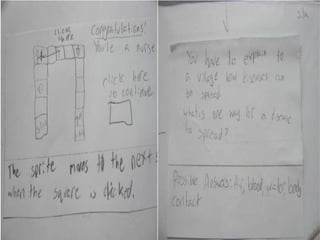 click
here
Congratulations!
You're a nurse
click here
to continue
The sprite moves to the next
when the square is clicked.
You have to explain to
a village how diseases can
be spread
what is one way for a disease
to spread?
Possible Answers: Air, blood, water, body
contact